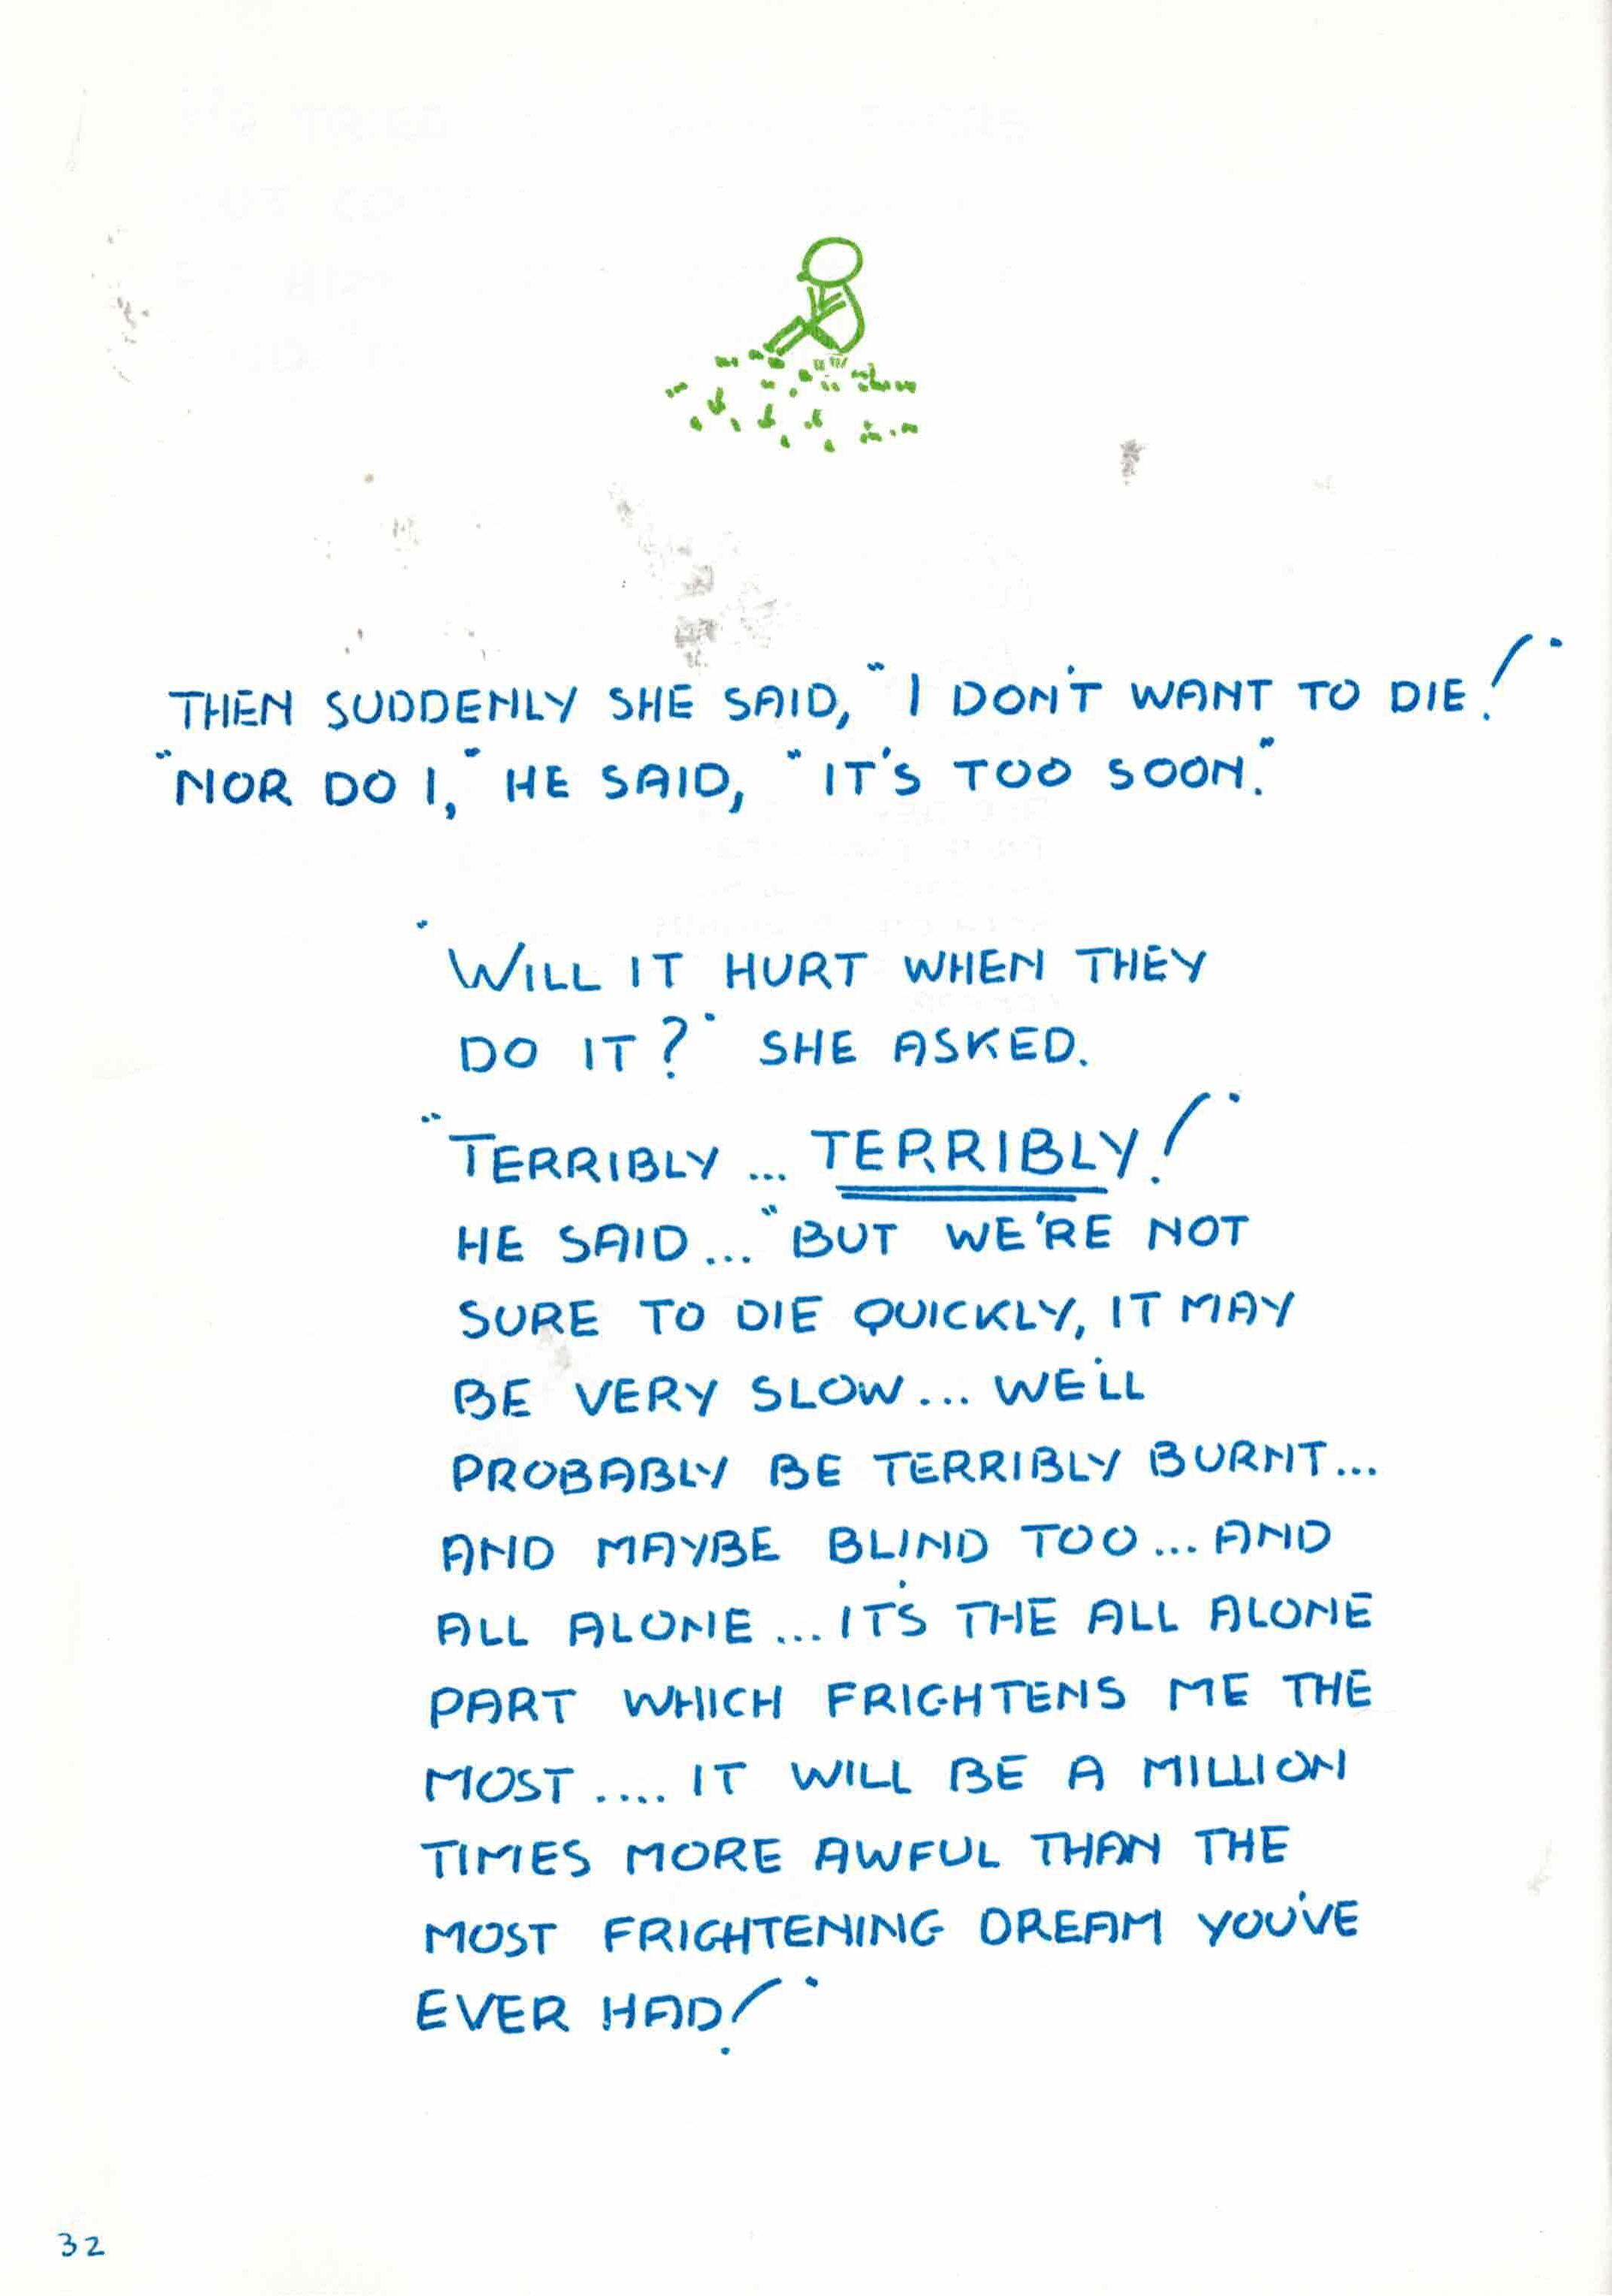 THEN SUDDENLY SHE SAID, "I DON'T WANT TO DIE!"
"NOR DO I," HE SAID, "IT'S TOO SOON."
"WILL IT HURT WHEN THEY
DO IT?" SHE ASKED.
"TERRIBLY ... TERRIBLY!"
HE SAID... "BUT WE'RE NOT
SURE TO DIE QUICKLY, IT MAY
BE VERY SLOW... WE'LL
PROBABLY BE TERRIBLY BURNT...
AND MAYBE BLIND TOO... AND
ALL ALONE ... IT'S THE ALL ALONE
PART WHICH FRIGHTENS ME THE
MOST .... IT WILL BE A MILLION
TIMES MORE AWFUL THAN THE
MOST FRIGHTENING DREAM YOU'VE
EVER HAD!"
32